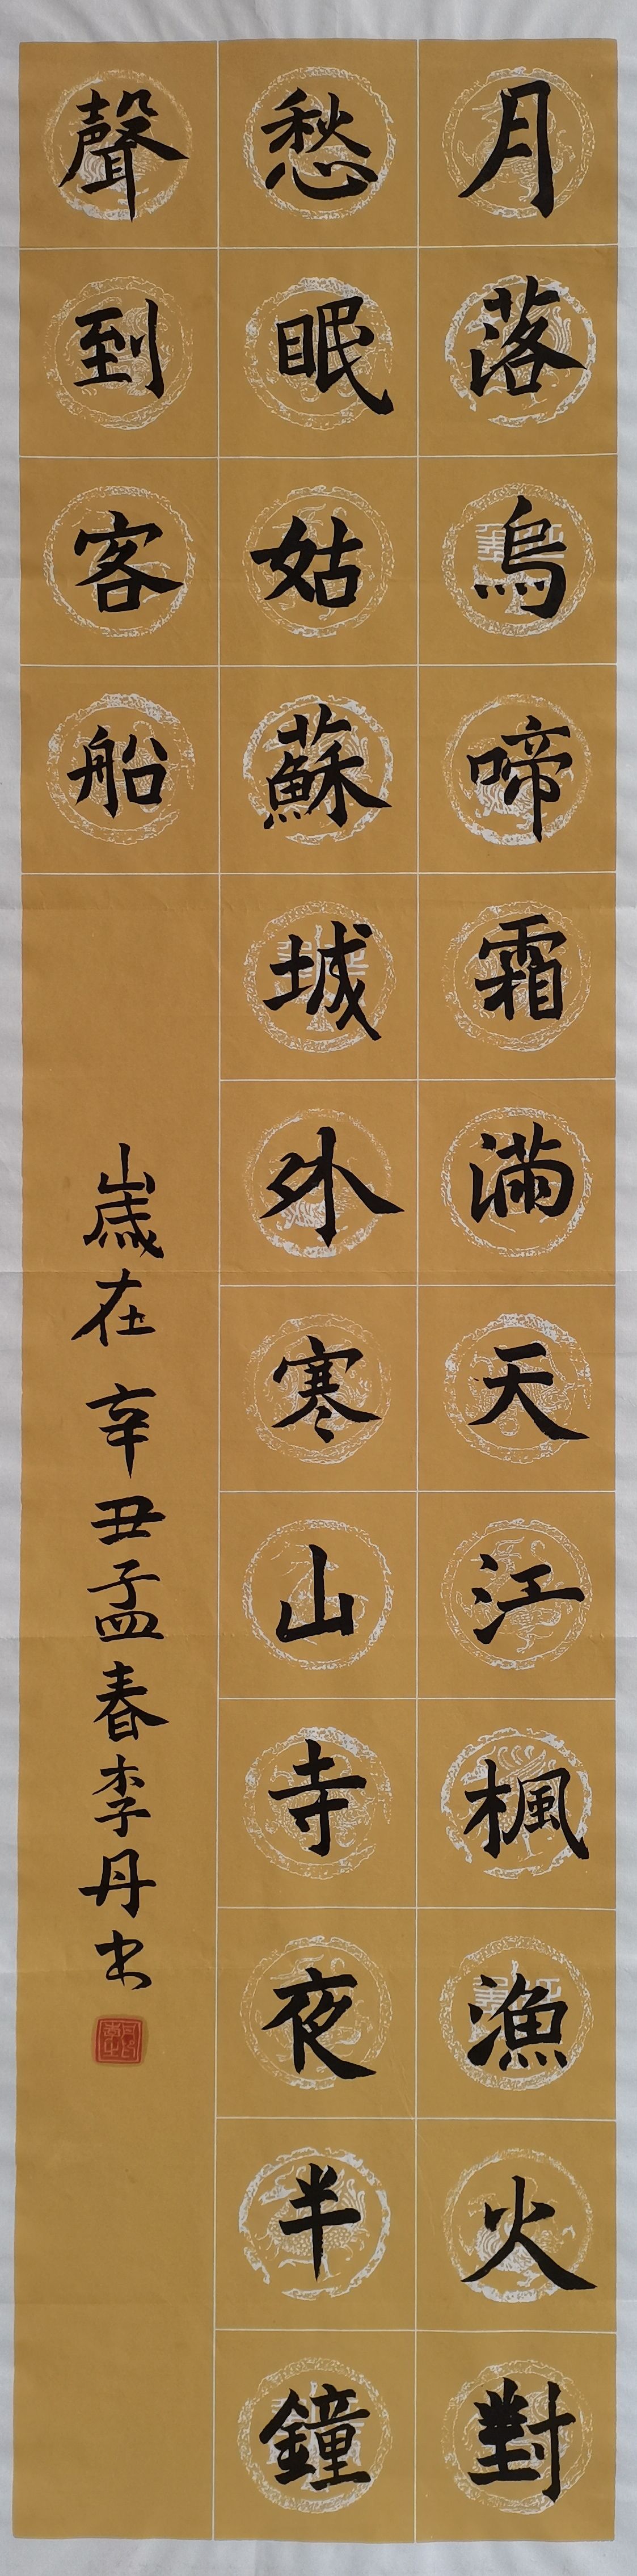 月落烏啼霜滿天江楓漁火對
愁眠姑蘇城外寒山寺夜半鐘
聲到客船
歲在辛丑孟春李丹书